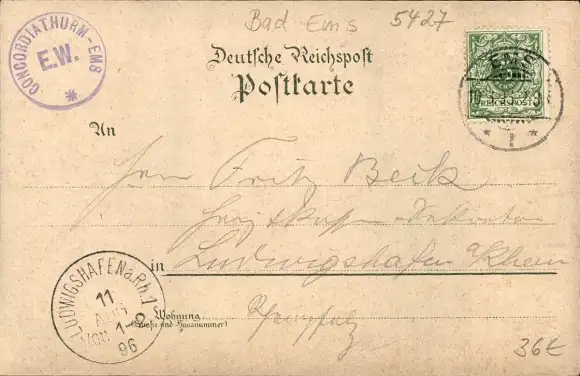 Bad Ems 5427
CONCORDIATHURM-EMS
E.W.
*
Deutsche Reichspost
Postkarte
EMS
REICHSPOST
* 1 *
An
Herrn Fritz Beck
in Ludwigshafen a/Rhein
Wohnung
(Straße und Hausnummer)
LUDWIGSHAFEN a. Rh. 1
11
AUG
VOR. 1-2
96
36€